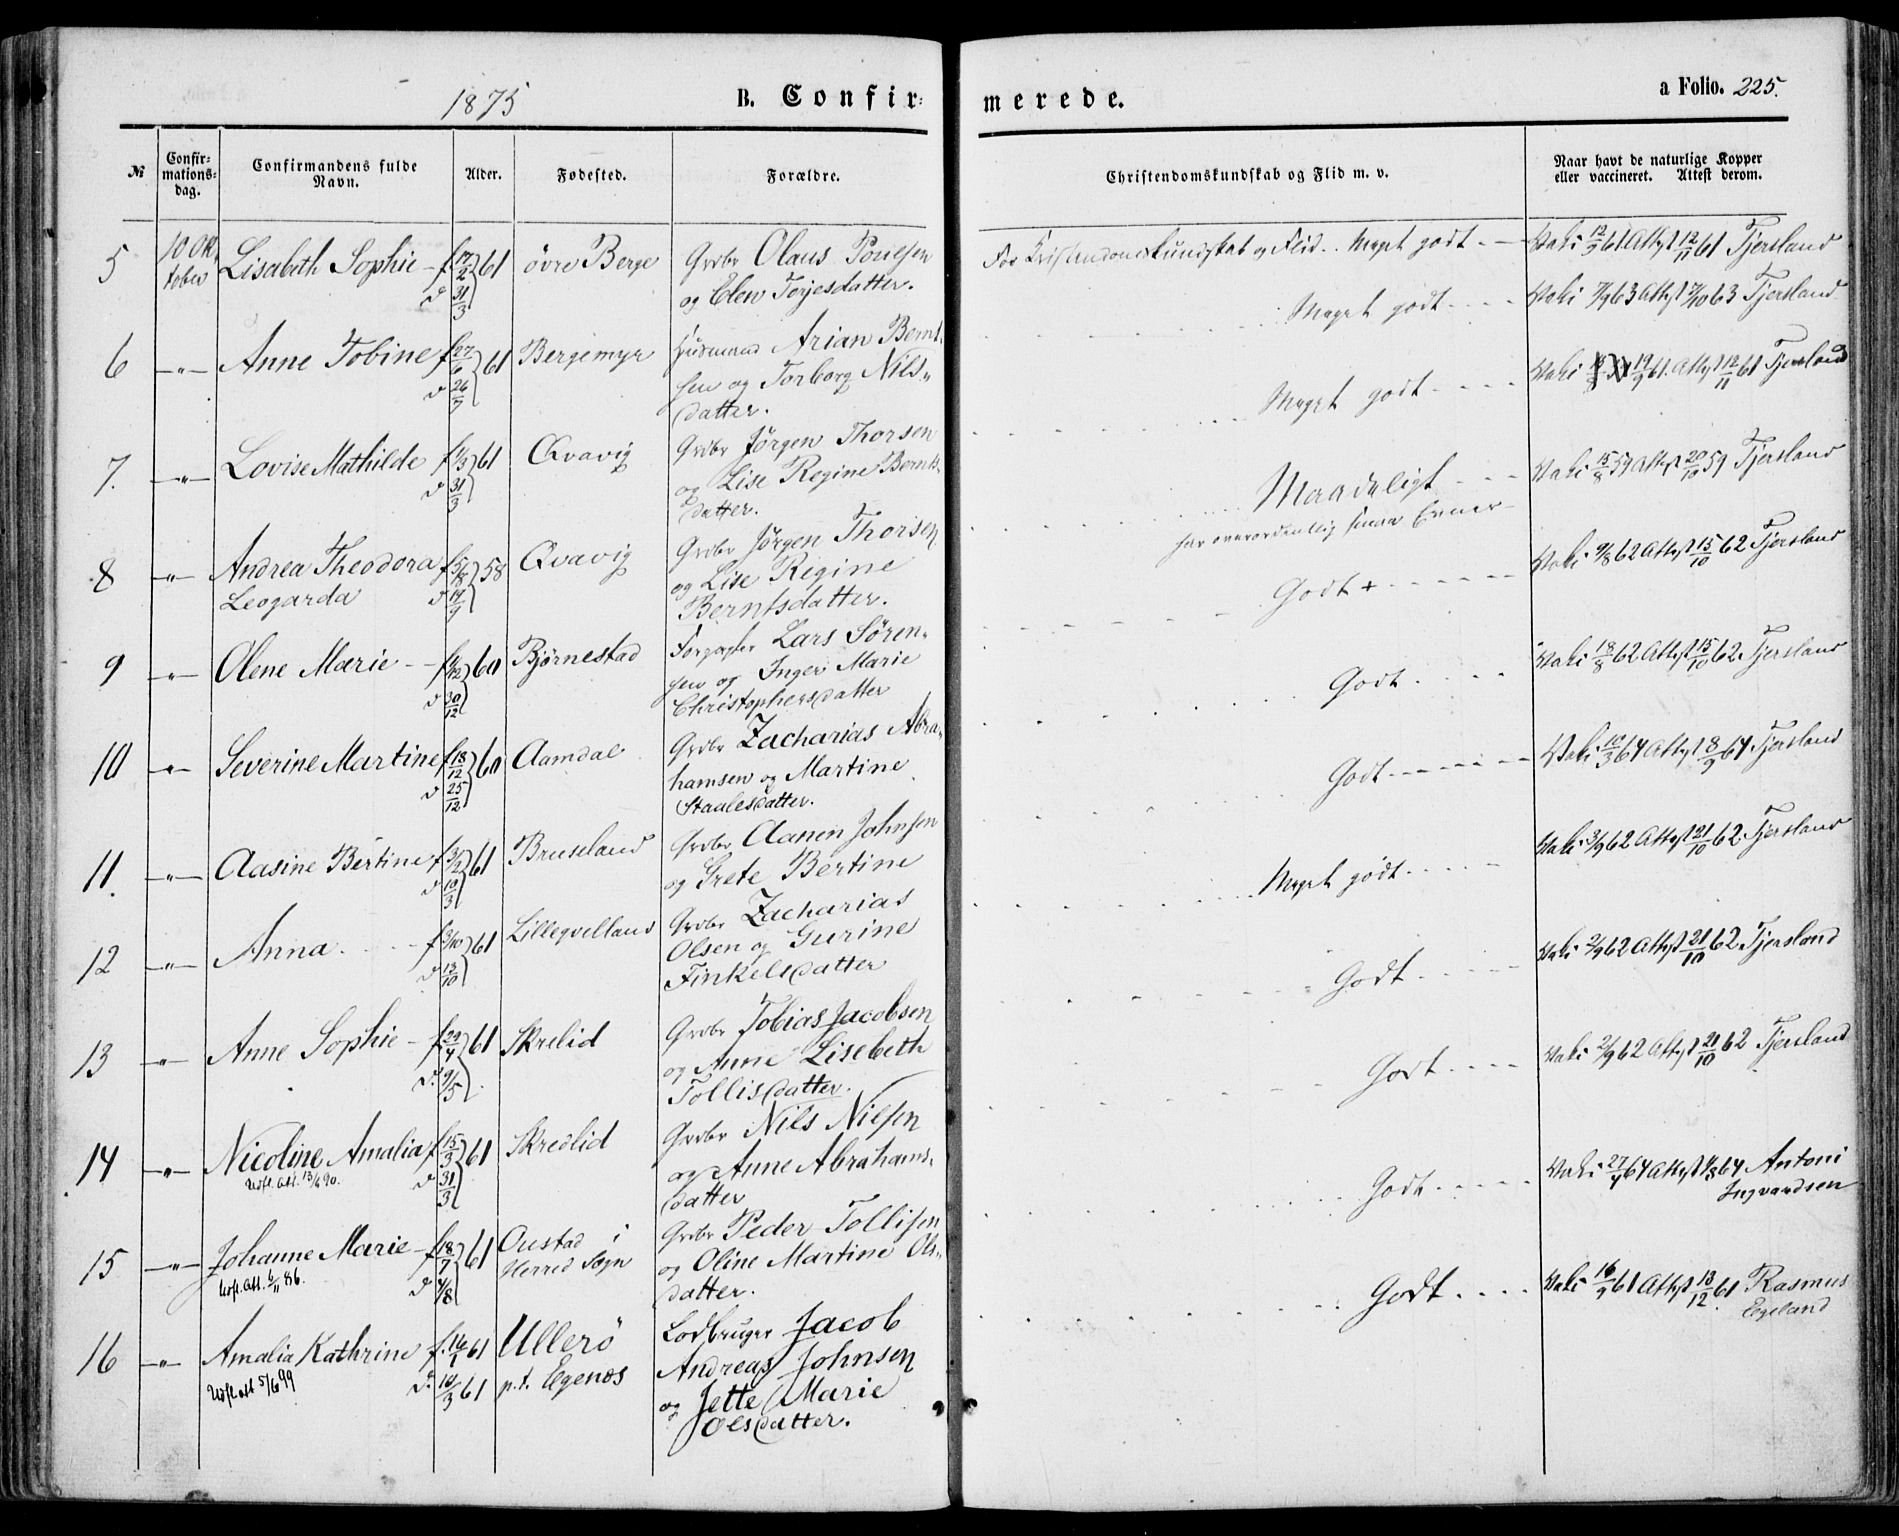 1875
B. Confir-
merede.
a Folio. 225.
No
Confir-
mations-
dag.
Confirmandens fulde
Navn.
Alder.
Fødested.
Forældre.
Christendomskundskab og Flid m. v.
Naar havt de naturlige Kopper
eller vaccineret. Attest derom.
5 10 Ok- Lisabeth Sophie f 17/2 61 øvre Berge Grdbr Olaus Poulsen
tober d 31/3 og Elen Torjesdatter.
For Kristendomskundskab og Flid. Meget godt. Vaki 12/9 61 Attest 12/11 61 Tjersland
6 -"- Anne Tobine f 27/6 61 Bergemyr Husmand Arian Bernt-
d 26/7 sen og Torborg Nils-
datter.
Meget godt Vaki 7/9 63 Attest 7/10 63 Tjersland
7. -"- Lovise Mathilde f 1/3 61 Qvavig Grdbr Jørgen Thorsen
d 31/3 og Lise Regine Bernts-
datter.
Meget godt Vaki 19/9 61. Attest 12/11 61 Tjersland
8 -"- Andrea Theodora f 5/8 58 Qvavig Grdbr Jørgen Thorsen
Leogarda d 19/9 og Lise Regine
Berntsdatter.
Maadeligt Vaki 15/8 59 Attest 20/10 59 Tjersland
har overordentlig smaa Evner
9 -"- Olene Marie 60 Bjørnestad Forpagter Lars Søren-
d 30/12 sen og Inger Marie
Christophersdatter
Godt + Vaki 9/8 62 Attest 15/10 62 Tjersland
10 -"- Severine Martine f 18/12 60 Aamdal Grdbr Zacharias Abra-
d 25/12 hamsen og Martine
Staalesdatter.
Godt Vaki 18/8 62 Attest 15/10 62 Tjersland
11. -"- Aasine Bertine f 3/2 61 Bruseland Grdbr Aanen Johnsen
d 10/3 og Grete Bertine
Godt Vaki 10/3 64 Attest 8/9 64 Tjersland
12 -"- Anna f 3/10 61 Lilleqvelland Grdbr Zacharias
d 13/10 Olsen og Gurine
Finkelsdatter
Meget godt Vaki 3/9 62 Attest 21/10 62 Tjersland
13 -"- Anne Sophie f 29/4 61 Skrelid Grdbr Tobias Jacobsen
d. 9/5 og Anne Lisebeth
Tollisdatter.
Godt Vaki 2/9 62 Attest 21/10 62 Tjersland
14 -"- Nicoline Amalia f 15/3 61 Skredlid Grdbr Nils Nilsen
Udst. Att. 13/6 90. d 31/3 og Anne Abrahams-
datter
Godt Vaki 2/9 62 Attest 21/10 62 Tjersland
15 -"- Johanne Marie f 18/7 61 Oustad i Grdbr Peder Tollisen
Udst. Att. 6/11 86. d 4/8 Herred Sogn og Oline Martine Ols-
datter.
Godt Vaki 27/7 64 Attest 1/8 64 Antoni
Ingvardsen
16 -"- Amalia Kathrine f. 16/1 61 Ullerö Lodbruger Jacob
Udst att 5/6 99 d. 10/3 61 p.t. Egenæs Andreas Johnsen
og Jette Marie
Olsdatter.
Godt Vaki 16/9 61 Attest 13/12 61 Rasmus
Egeland